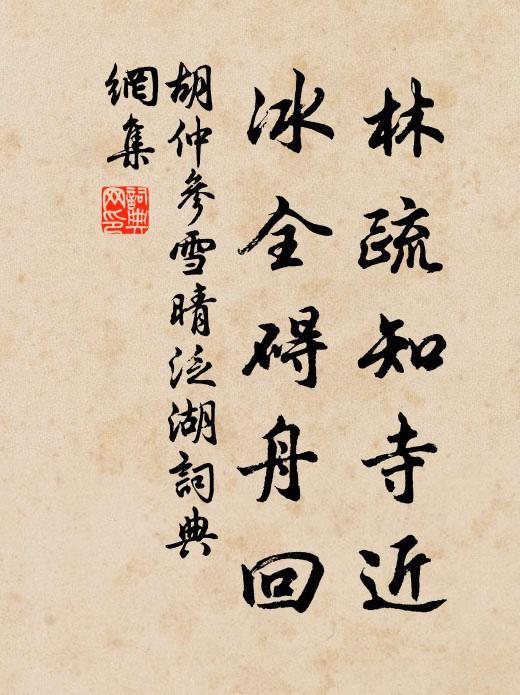 林疏知寺近
冰全碍舟回
胡仲參雪晴泛湖詞典
網集
詞典
网印